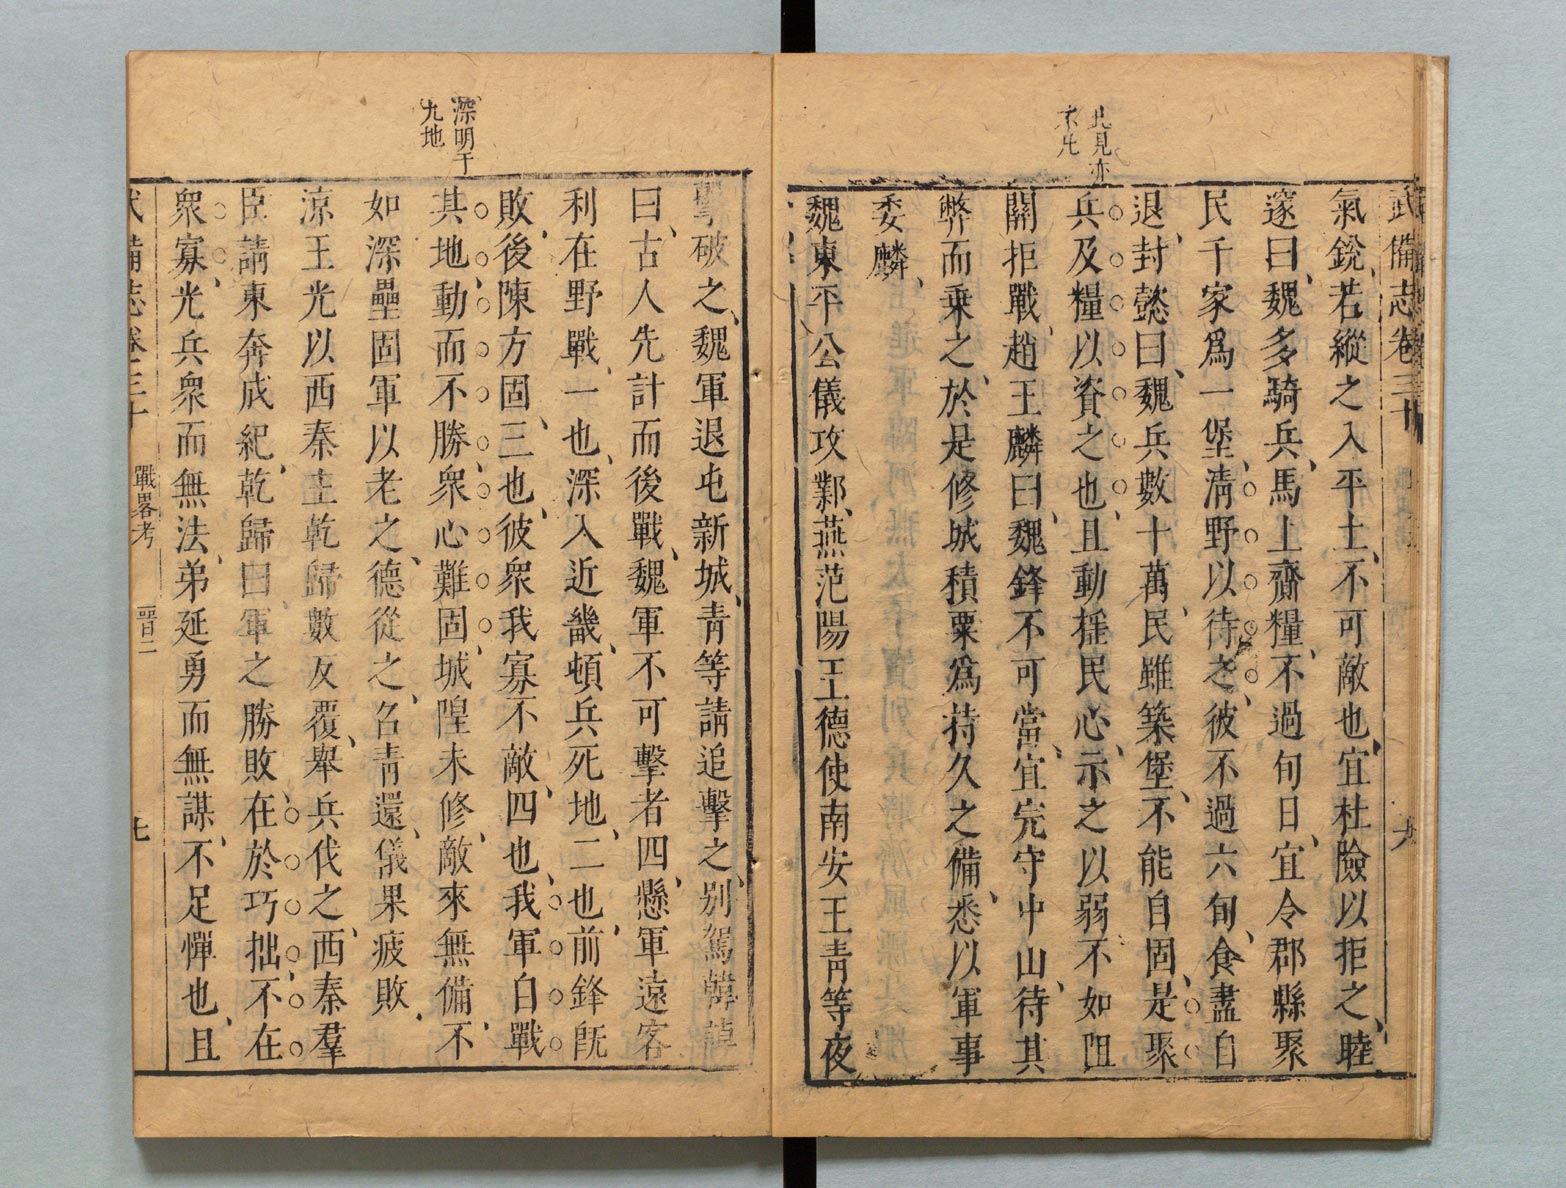 此見亦
未允
武備志卷三十
六
氣銳、若縱之入平土、不可敵也、宜杜險以拒之、睦
邃曰、魏多騎兵、馬上齎糧、不過旬日、宜令郡縣聚
民千家爲一堡、淸野以待之、彼不過六旬、食盡自
退、封懿曰、魏兵數十萬、民雖築堡、不能自固、是聚
兵及糧以資之也、且動搖民心、示之以弱、不如阻
關拒戰、趙王麟曰、魏鋒不可當、宜完守中山、待其
弊而乗之、於是修城積粟爲持久之備、悉以軍事
委麟、
魏東平公儀攻鄴、燕范陽王德使南安王青等夜
擊破之、魏軍退屯新城、青等請追擊之、别駕韓𧨳
曰、古人先計而後戰、魏軍不可擊者四、懸軍遠客
利在野戰、一也、深入近畿、頓兵死地、二也、前鋒旣
敗、後陳方固、三也、彼衆我寡不敵、四也、我軍自戰
其地、動而不勝、衆心難固、城隍未修、敵來無備、不
如深壘固軍以老之、德從之、召青還、儀果疲敗、
涼王光以西秦主乾歸數反覆、舉兵伐之、西秦羣
臣請東奔成紀、乾歸曰、軍之勝敗、在於巧拙、不在
衆寡、光兵衆而無法、弟延勇而無謀、不足憚也、且
深明于
九地
武備志卷三十
戰畧考
晉二
七